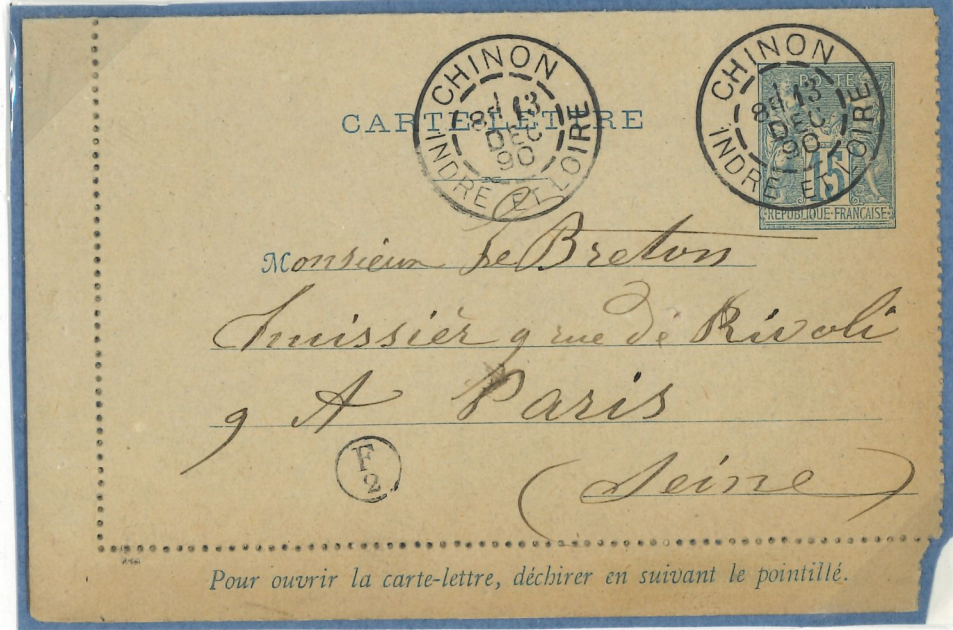 CHINON
1
8E 13
DEC
90
INDRE ET LOIRE
CHINON
1
8E 13
DEC
90
INDRE ET LOIRE
POSTE
15
REPUBLIQUE FRANCAISE
CARTE-LETTRE
Monsieur Le Breton
huissier 9 rue de Rivoli
9 A Paris
(Seine)
F
2
Pour ouvrir la carte-lettre, déchirer en suivant le pointillé.